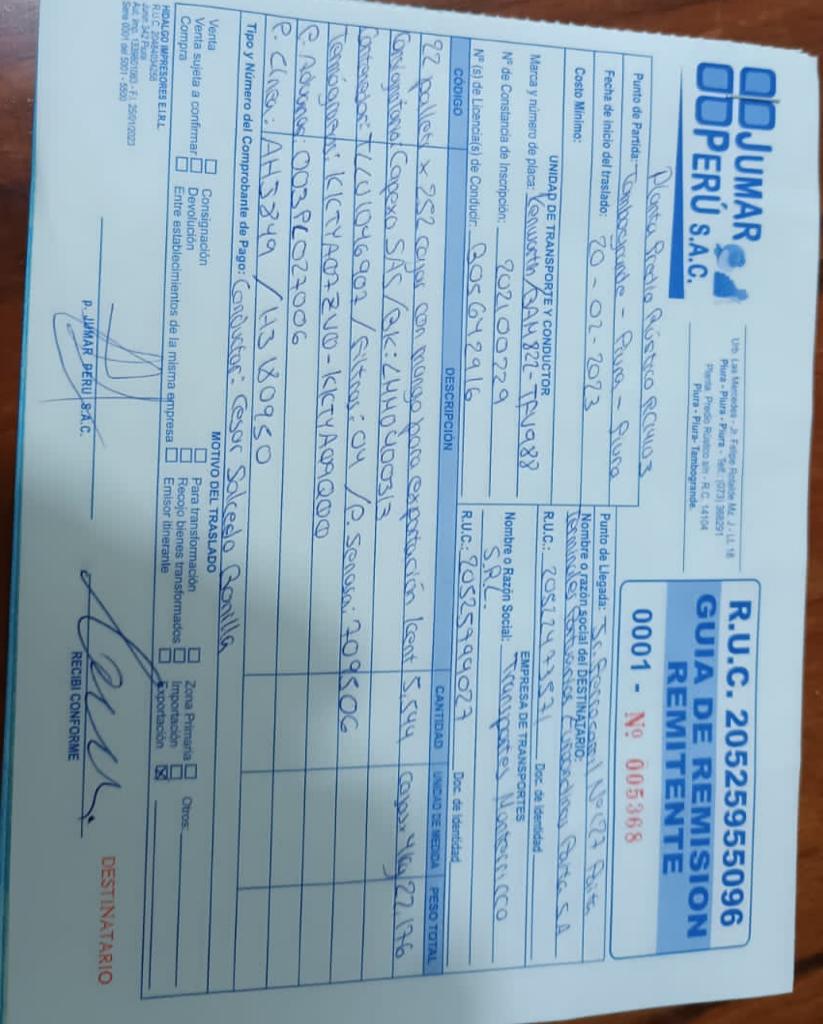 JUMAR
PERÚ S.A.C.
Urb. Las Mercedes - Jr. Felipe Rotalde Mz. J - Lt. 18
Piura - Piura - Piura - Telf. (073) 368291
Planta: Predio Rústico s/n - R.C. 14104
Piura - Piura - Tambogrande
R.U.C. 20525955096
GUIA DE REMISION
REMITENTE
0001 - Nº 005368
Planta Predio Rústico
Punto de Partida: Tambogrande - Piura - Piura
Fecha de inicio del traslado: 20 - 02 - 2023
Costo Mínimo:
Punto de Llegada: Nº 127 Paita
Nombre o razón social del DESTINATARIO:
Terminales Portuarios Euroandinos Paita S.A
R.U.C.: 20522473571 Doc. de Identidad
UNIDAD DE TRANSPORTE Y CONDUCTOR
Marca y número de placa: Kenworth/
Nº de Constancia de Inscripción:
Nº (s) de Licencia(s) de Conducir: Q05642916
EMPRESA DE TRANSPORTES
Nombre o Razón Social: Transportes Monterricco
S.R.L.
R.U.C.: 20525994027 Doc. de Identidad
CÓDIGO DESCRIPCIÓN CANTIDAD UNIDAD DE MEDIDA PESO TOTAL
22 pallets x 252 cajas con mango para exportación Kent 5,544 cajas 4kg 22,176
Consignatario: Capexo SAS /
Contenedor: / Filtros: 04 / P. Senasa: 709506
Termógrafo:
P. Aduanas: 003PC027006
P. Claro: AH3849 / H3180950
Tipo y Número del Comprobante de Pago: Conductor: Cesar Salcedo Bonilla
MOTIVO DEL TRASLADO
Venta Consignación Para transformación Zona Primaria Otros:
Venta sujeta a confirmar Devolución Recojo bienes transformados Importación
Compra Entre establecimientos de la misma empresa Emisor itinerante Exportación
HIDALGO IMPRESORES E.I.R.L.
Serie 0001 del 5001 - 5500
P. JUMAR PERU S.A.C.
RECIBI CONFORME
DESTINATARIO